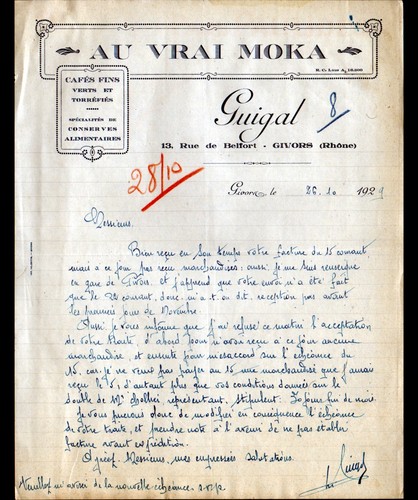 AU VRAI MOKA
R. C. Lyon A. 
CAFÉS FINS
VERTS ET
TORRÉFIÉS
SPÉCIALITÉS DE
CONSERVES
ALIMENTAIRES
Guigal
8
13, Rue de Belfort - GIVORS (Rhône)
28/10
Givors, le 26.10 1929
Messieurs,
Bien reçu en son temps votre facture du 15 courant,
mais à ce jour pas reçu marchandises; aussi je me suis renseigné
en gare de Givors, et j'apprend que votre envoi n'a été fait
que le 22 courant, donc, m'a-t-on dit, réception pas avant
les premiers jours de Novembre.
Aussi je vous informe que j'ai refusé ce matin l'acceptation
de votre traite, d'abord pour n'avoir reçu à ce jour aucune
marchandise, et ensuite pour désaccord sur l'échéance du
15, car je ne veux pas payer au 15 une marchandise que j'aurai
reçu le 5, d'autant plus que vos conditions données sur le
double de Mr représentant, stipulent 30 jours fin de mois.
Je vous prierai donc de modifier en conséquence l'échéance
de votre traite, et prendre note à l'avenir de ne pas établir
facture avant expédition.
Agréez Messieurs, mes empressées salutations.
Guigal
Veuillez m'aviser de la nouvelle échéance. s.v.p.